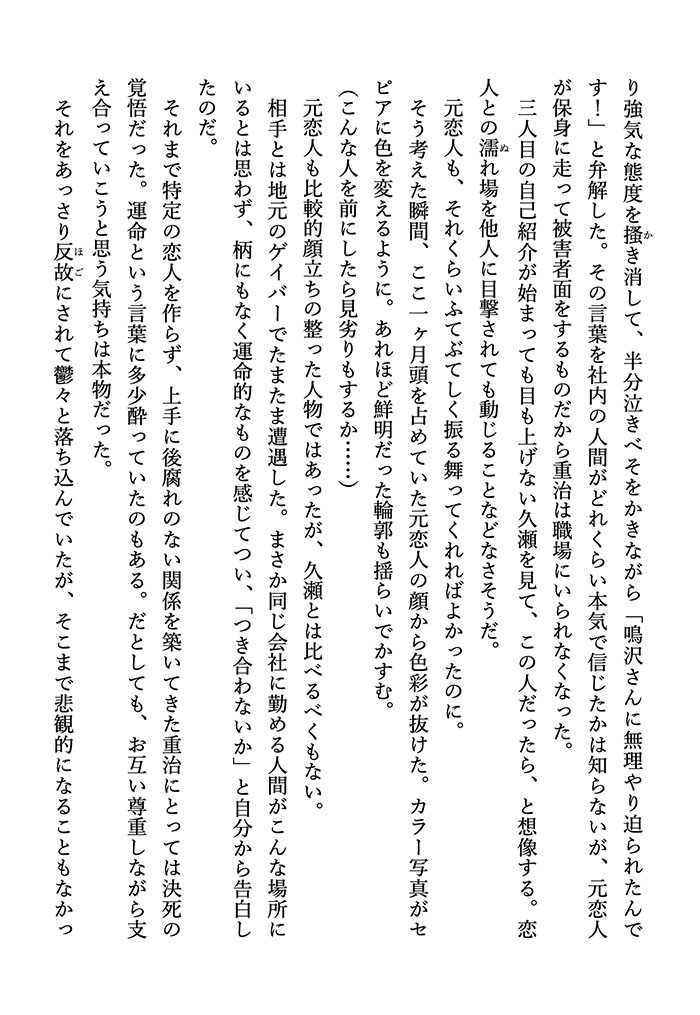 り強気な態度を掻き消して、半分泣きべそをかきながら「鳴沢さんに無理やり迫られたんで
す！」と弁解した。その言葉を社内の人間がどれくらい本気で信じたかは知らないが、元恋人
が保身に走って被害者面をするものだから重治は職場にいられなくなった。
三人目の自己紹介が始まっても目も上げない久瀬を見て、この人だったら、と想像する。恋
人との濡れ場を他人に目撃されても動じることなどなさそうだ。
元恋人も、それくらいふてぶてしく振る舞ってくれればよかったのに。
そう考えた瞬間、ここ一ヶ月頭を占めていた元恋人の顔から色彩が抜けた。カラー写真がセ
ピアに色を変えるように。あれほど鮮明だった輪郭も揺らいでかすむ。
（こんな人を前にしたら見劣りもするか……）
元恋人も比較的顔立ちの整った人物ではあったが、久瀬とは比べるべくもない。
相手とは地元のゲイバーでたまたま遭遇した。まさか同じ会社に勤める人間がこんな場所に
いるとは思わず、柄にもなく運命的なものを感じてつい、「つき合わないか」と自分から告白し
たのだ。
それまで特定の恋人を作らず、上手に後腐れのない関係を築いてきた重治にとっては決死の
覚悟だった。運命という言葉に多少酔っていたのもある。だとしても、お互い尊重しながら支
え合っていこうと思う気持ちは本物だった。
それをあっさり反故にされて鬱々と落ち込んでいたが、そこまで悲観的になることもなかっ